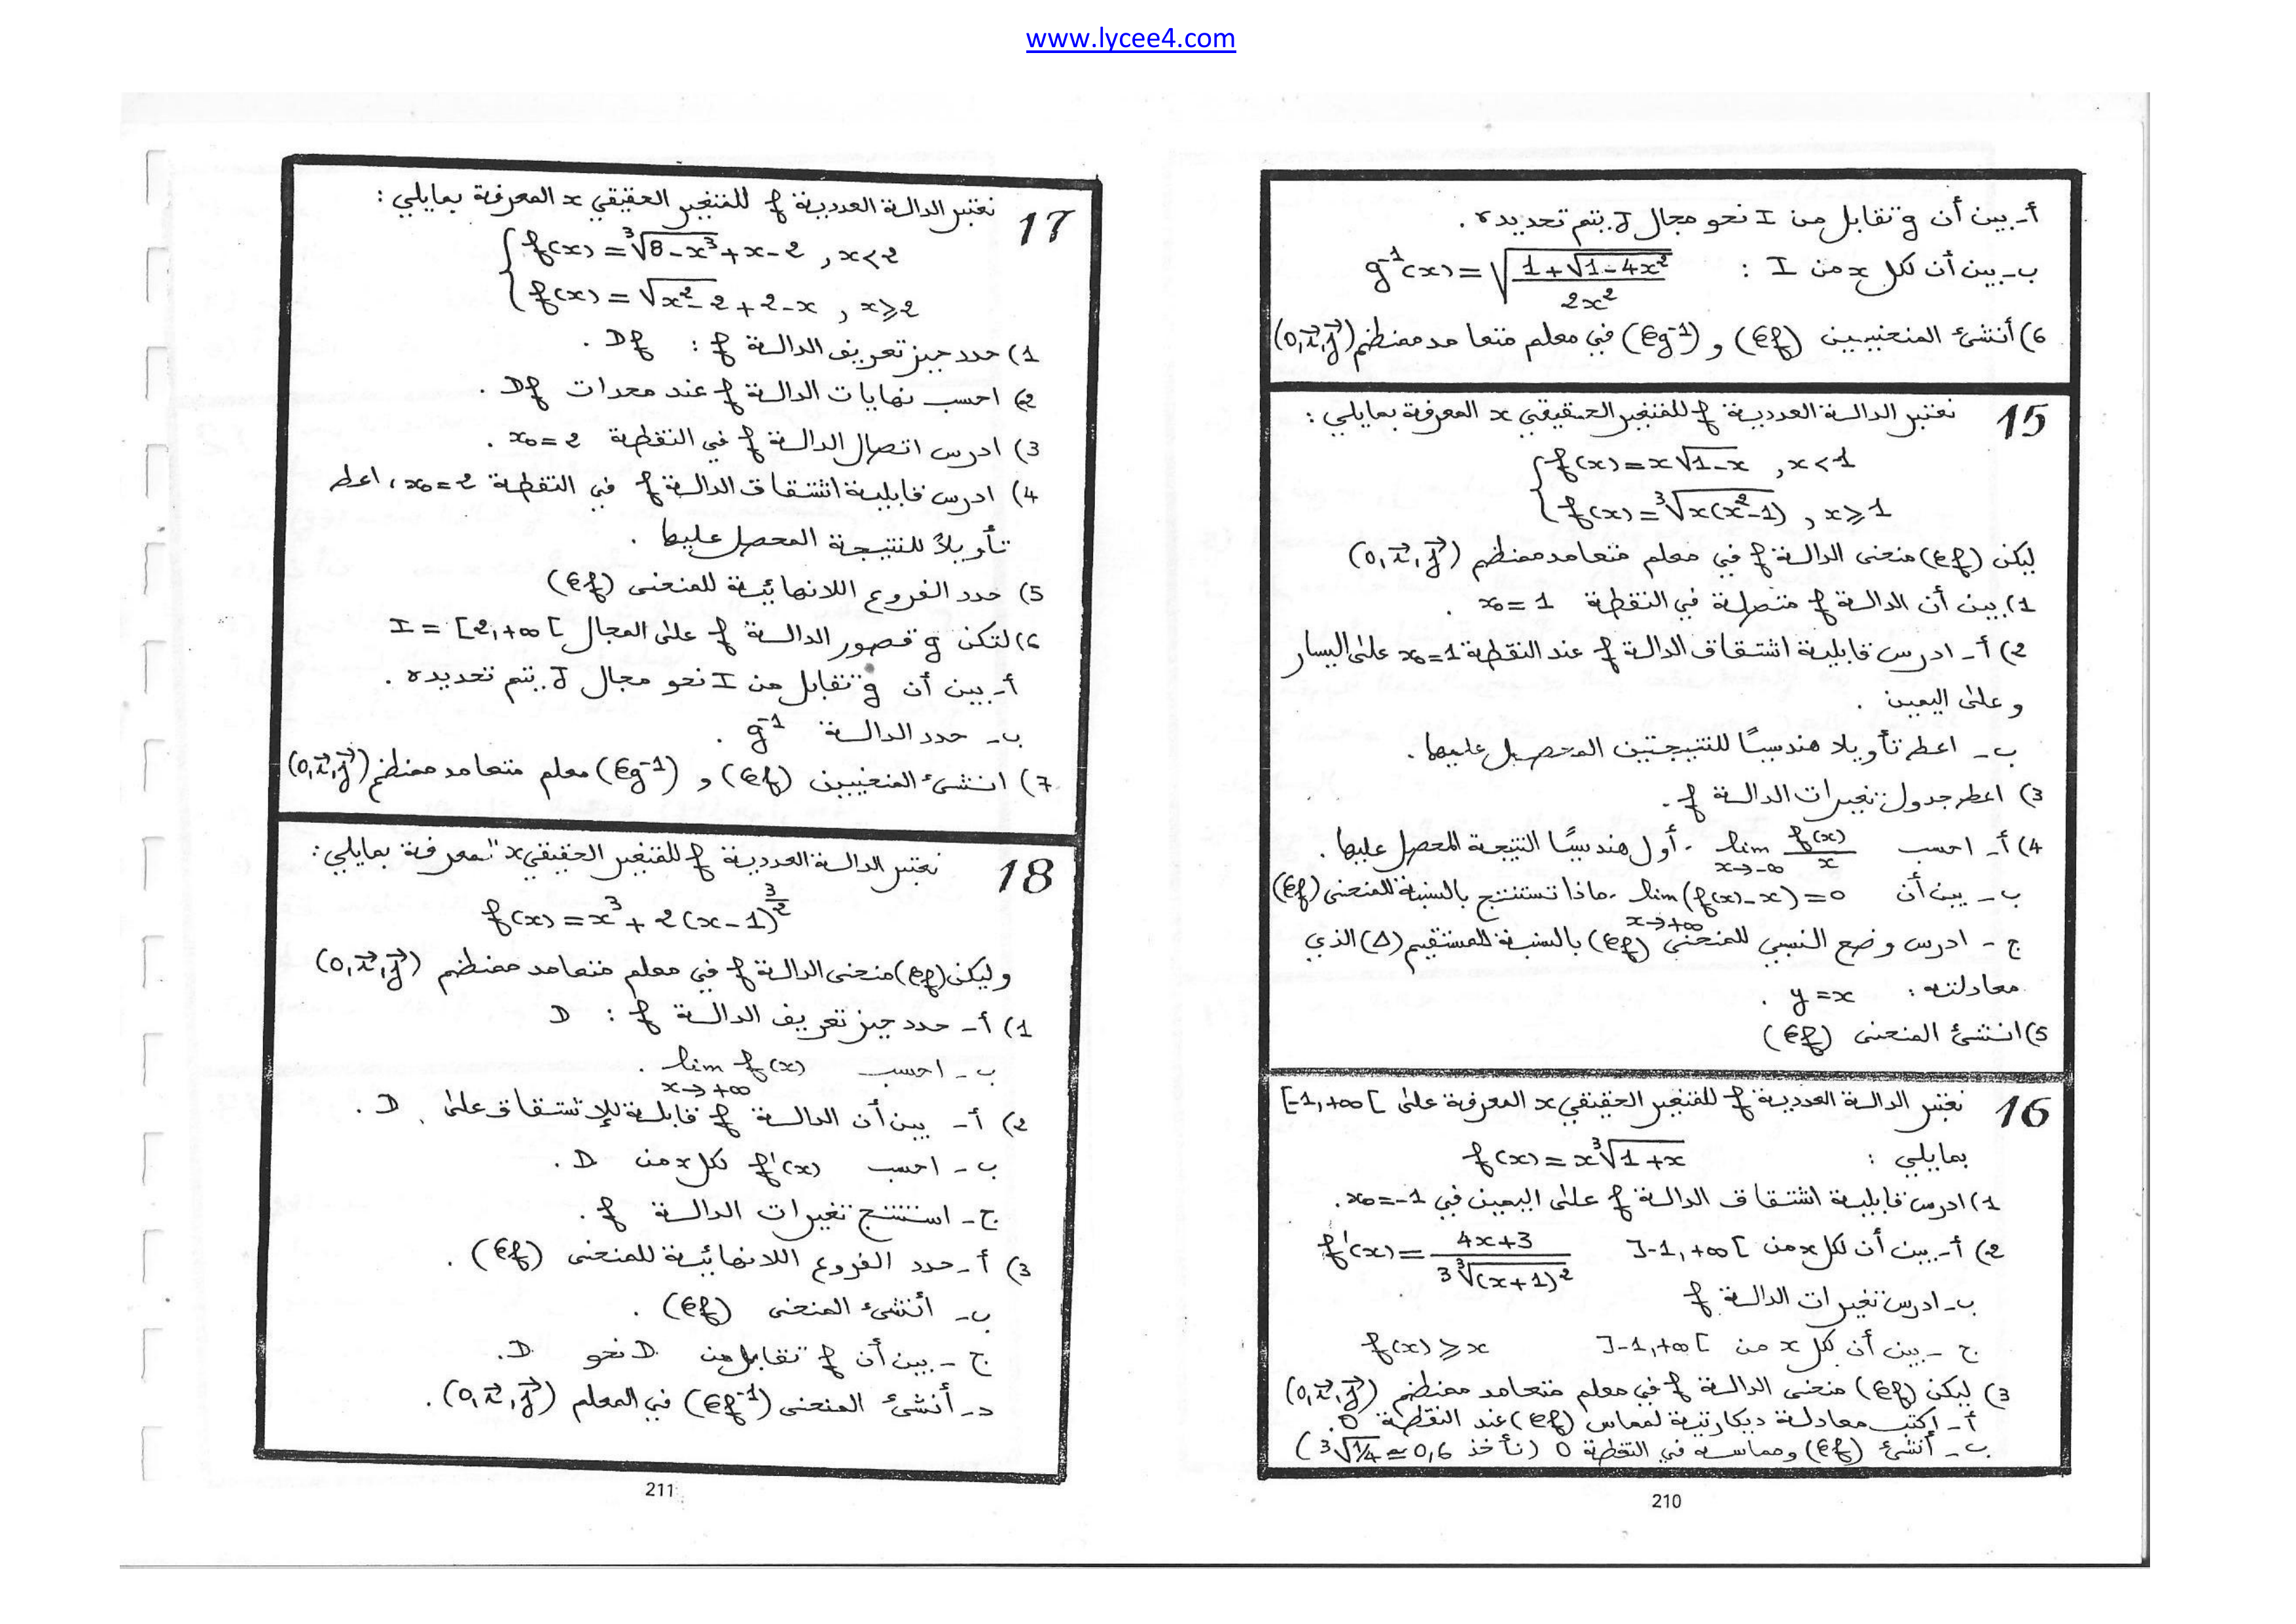 www.lycee4.com
أ- بين أن g تقابل من I نحو مجال J يتم تحديده .
ب- بين أن لكل x من I : g⁻¹(x) = √((1+√(1-4x²))/(2x²))
6) أنشئ المنحنيين (Cf) و (Cg⁻¹) في معلم متعامد ممنظم (0,i⃗,j⃗)
15 نعتبر الدالة العددية f للمتغير الحقيقي x المعرفة بمايلي :
{ f(x) = x√(1-x) , x<1
{ f(x) = ³√(x(x²-1)) , x⩾1
ليكن (Cf) منحنى الدالة f في معلم متعامد ممنظم (0,i⃗,j⃗)
1) بين أن الدالة f متصلة في النقطة x₀=1 .
2) أ- ادرس قابلية اشتقاق الدالة f عند النقطة x₀=1 على اليسار
و على اليمين .
ب- اعط تأويلا هندسيًا للنتيجتين المحصل عليها .
3) اعط جدول تغيرات الدالة f .
4) أ- احسب lim_{x→-∞} f(x)/x . أول هندسيًا النتيجة المحصل عليها .
ب- بين أن lim_{x→+∞} (f(x)-x)=0 . ماذا تستنتج بالنسبة للمنحنى (Cf)
ج- ادرس وضع النسبي للمنحنى (Cf) بالنسبة للمستقيم (Δ) الذي
معادلته : y=x .
5) انشئ المنحنى (Cf)
16 نعتبر الدالة العددية f للمتغير الحقيقي x المعرفة على [-1,+∞[
بمايلي : f(x) = x³√(1+x)
1) ادرس قابلية اشتقاق الدالة f على اليمين في x₀=-1 .
2) أ- بين أن لكل x من ]-1,+∞[ f'(x) = (4x+3)/(3³√((x+1)²))
ب- ادرس تغيرات الدالة f
ج- بين أن لكل x من ]-1,+∞[ f(x)⩾x
3) ليكن (Cf) منحنى الدالة f في معلم متعامد ممنظم (0,i⃗,j⃗)
أ- اكتب معادلة ديكارتية لمماس (Cf) عند النقطة 0 .
ب- أنشئ (Cf) ومماسه في النقطة 0 (نأخذ ³√1/4 ≃ 0,6)
210
17 نعتبر الدالة العددية f للمتغير الحقيقي x المعرفة بمايلي :
{ f(x) = ³√(8-x³) + x-2 , x<2
{ f(x) = √(x²-2) + 2-x , x⩾2
1) حدد حيز تعريف الدالة f : Df .
2) احسب نهايات الدالة f عند محدات Df .
3) ادرس اتصال الدالة f في النقطة x₀=2 .
4) ادرس قابلية اشتقاق الدالة f في النقطة x₀=2 ، اعط
تأويلاً للنتيجة المحصل عليها .
5) حدد الفروع اللانهائية للمنحنى (Cf)
6) لتكن g قصور الدالة f على المجال I = [2,+∞[
أ- بين أن g تقابل من I نحو مجال J يتم تحديده .
ب- حدد الدالة g⁻¹ .
7) انشئ المنحنيين (Cf) و (Cg⁻¹) معلم متعامد ممنظم (0,i⃗,j⃗)
18 نعتبر الدالة العددية f للمتغير الحقيقي x المعرفة بمايلي :
f(x) = x³ + 2(x-1)^(3/2)
وليكن (Cf) منحنى الدالة f في معلم متعامد ممنظم (0,i⃗,j⃗)
1) أ- حدد حيز تعريف الدالة f : D
ب- احسب lim_{x→+∞} f(x) .
2) أ- بين أن الدالة f قابلة للإشتقاق على D .
ب- احسب f'(x) لكل x من D .
ج- استنتج تغيرات الدالة f .
3) أ- حدد الفروع اللانهائية للمنحنى (Cf) .
ب- أنشئ المنحنى (Cf) .
ج- بين أن f تقابل من D نحو D .
د- أنشئ المنحنى (Cf⁻¹) في المعلم (0,i⃗,j⃗) .
211